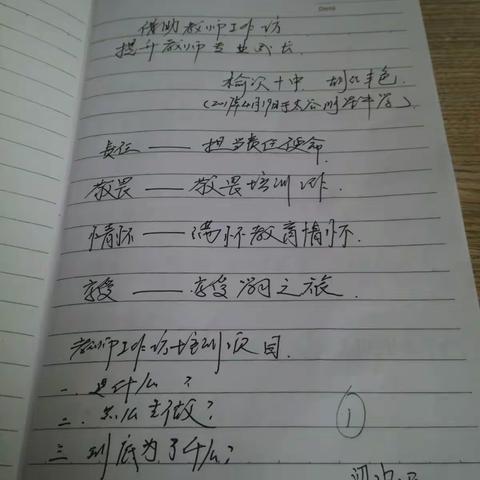 借助教师工作坊
提升教师专业成长
榆次十中 胡 色
(2017年4月19日于太谷 中学)
责任——担当责任使命
敬畏——敬畏培训工作.
情怀——满怀教育情怀.
享受——享受学习之旅.
教师工作坊培训项目.
一.是什么?
二.怎么去做?
三 到底为了什么?
①